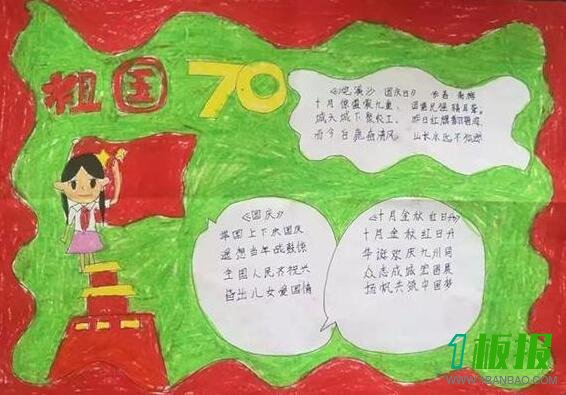 祖国70
《浣溪沙 国庆日》
十月惊雷震九重，
城头城下聚秋工，
而今日
山长水远
《国庆》
举国上下庆国庆
遥想当年战鼓惊
全国人民齐祝兴
皆出儿女爱国情
《十月金秋红日升》
十月金秋红日升
华诞欢庆九州同
众志成城宏图展
扬帆共筑中国梦
1板报
WWW.YIBANBAO.COM